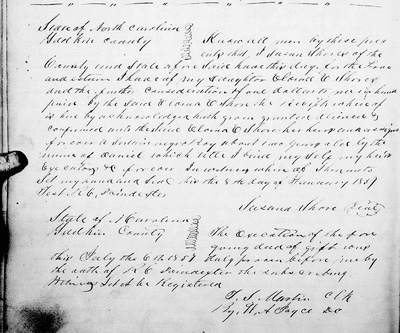 State of North Carolina
Yadkin County Know all men by these pres
ents that I Susan Shores of the
County and State afore Said have this day for the Love
and esteem I have of my Daughter Elvira E Shores
and the further Consideration of one dollar to me in hand
paid by the Said E Shore the Receipt where of
is here by acknowledged hath given granted delivered
Confirmed unto the Said E Shore her heirs and assigns
for ever a Sertain negro boy about two years old by the
name of Daniel which title I bind my Self my heirs
Executors &c for ever In witness where of I here unto
Set my hand and Seal this the 8th day of 1857
Test R C Poindexter
Susand Shore Seal
State of N Carolina
Yadkin County The Execution of the fore
going deed of gift was
this July the 6th 1857 duly proven before me by
the oath of R C Poindexter the subscribing
Let be Registered
T. S. Martin Clk
By W A Joyce DC